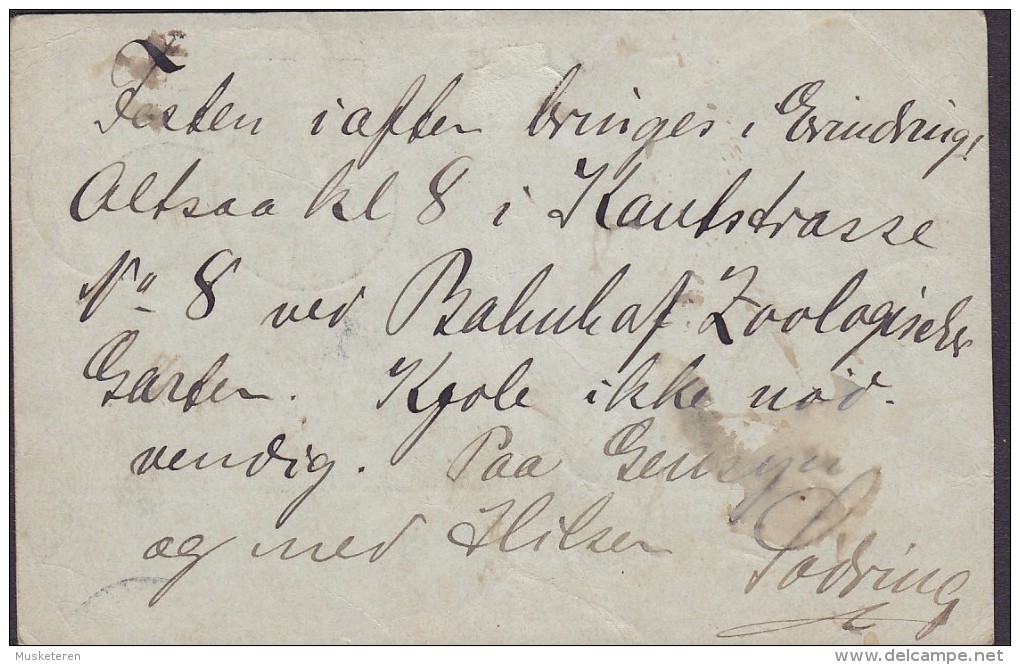 Festen iaften bringes i Erindring,
Altsaa kl 8 i Kantstrasse
No 8 ved Bahnhof Zoologischer
Garten. Kjole ikke nød-
vendig. Paa Gensyn
og med Hilsen Sødring
Musketeren
delcampe.net